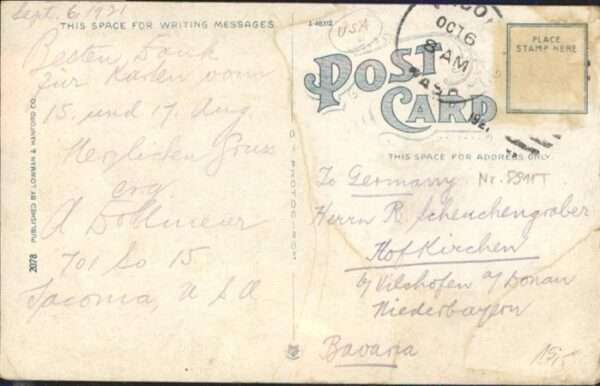 Sept. 6, 1921
THIS SPACE FOR WRITING MESSAGES
Besten Dank
für Karten vom
15. und 17. Aug.
Herzlichen Gruss
701 So 15
Tacoma, U S A
2078 PUBLISHED BY LOWMAN & HANFORD CO.
USA
OCT 6
8 AM
WASH
192
POST CARD
PLACE
STAMP HERE
THIS SPACE FOR ADDRESS ONLY
To Germany
Herrn R. Scheuchengraber
Hofkirchen
b/ Vilshofen a/ Donau
Niederbayern
Bavaria